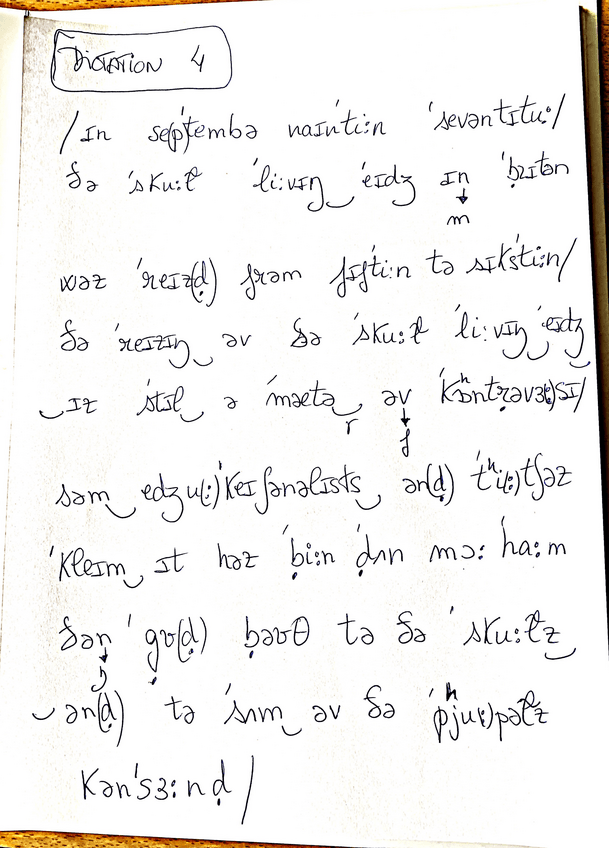 DICTATION 4
/ɪn se(p)ˈtembə naɪnˈtiːn ˈsevəntɪtuː/
ðə ˈskuːɫ ˈliːvɪŋ‿ˈeɪdʒ ɪn ˈb̥rɪtən
↓
m
wəz ˈreɪz(d̥) frəm fɪfˈtiːn tə sɪksˈtiːn/
ðə ˈreɪzɪŋ‿əv ðə ˈskuːɫ ˈliːvɪŋ‿ˈeɪdʒ‿
‿ɪz ˈstɪl‿ə ˈmætə‿əv ˈkʰɒntrəvɜ(ː)sɪ/
r ↓
f
səm‿edʒu(ː)ˈkeɪʃənəlɪsts‿ən(d̥) ˈtʰi(ː)tʃəz
ˈkleɪm‿ɪt həz ˈb̥iːn ˈd̥ʌn mɔː ˈhaːm
ðən ˈgʊ(d̥) b̥əʊθ tə ðə ˈskuːɫz‿
↓
ŋ
‿ən(d̥) tə ˈsʌm‿əv ðə ˈpʰju(ː)pəɫz
kənˈsɜːnd̥/